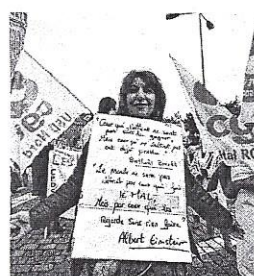 "Ceux qui luttent ne sont
pas sûrs de gagner
Mais ceux qui ne luttent pas
ont déjà perdu.
Bertolt Brecht
"Le Monde ne sera pas
détruit par ceux qui font
le MAL
Mais par ceux qui les
Regarde Sans rien faire
Albert Einstein
cgt